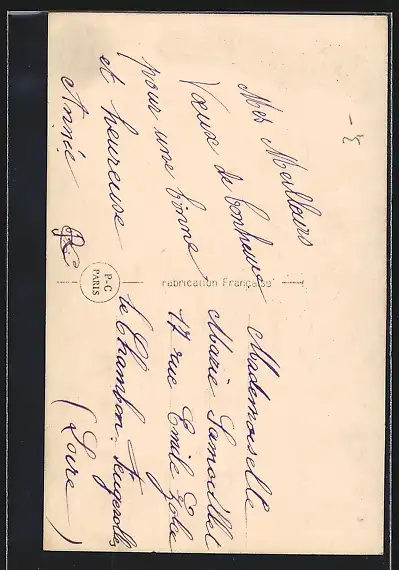 Mes Meilleurs
Vœux de bonheur
pour une bonne
et heureuse
Année
Fabrication Française
P-C
PARIS
Mademoiselle
Marie
17 rue Emile Zola
le Chambon-Feugerolles
(Loire)